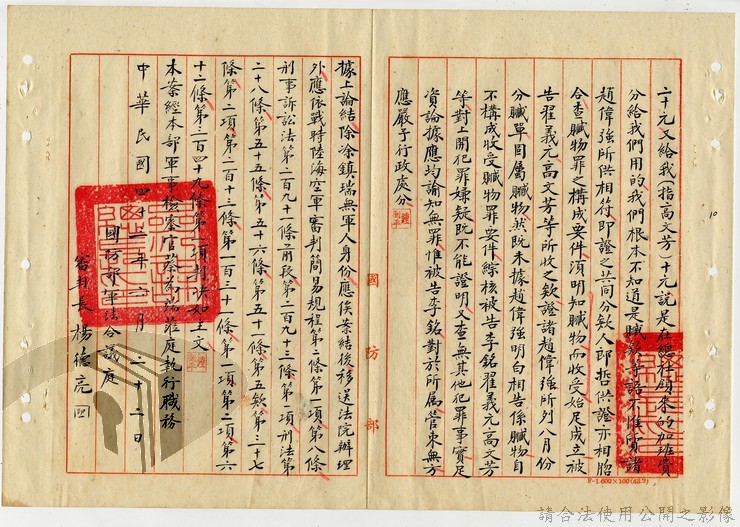 二十元又給我(指高文芳)十元說是在總社領來的加班費
分給我們用的我們根本不知道是贓款等語不惟質諸
趙偉強所供相符即證之共同分欵人郎哲供證亦相脗
合查贓物罪之構成要件須明知贓物而收受始足成立被
告翟義元高文芳等所收之欵證諸趙偉強所列八月份
分贓單固屬贓物然既未據趙偉強明白相告係贓物自
不構成收受贓物罪要件綜核被告李銘翟義元高文芳
等對上開犯罪嫌疑既不能證明又查無其他犯罪事實足
資論據應均諭知無罪惟被告李銘對於所屬管束無方
應嚴予行政處分
國防部
據上論結除涂鎮瑞無軍人身份應俟案結後移送法院辦理
外應依戰時陸海空軍審判簡易規程第二條第一項第八條
刑事訴訟法第二百九十一條前段第二百九十三條第一項刑法第
二十八條第五十五條第五十六條第五十一條第五欵第三十七
條第二項第二百十三條第一百三十一條第一項第二項第六
十二條第三百四十九條第一項判決如主文
本案經本部軍事檢察官蔡為瑞蒞庭執行職務
中華民國四十三年六月二十二日
國防部軍法合議庭
審判長楊德亮
10
F-1.600×100(42.9)
請合法使用公開之影像